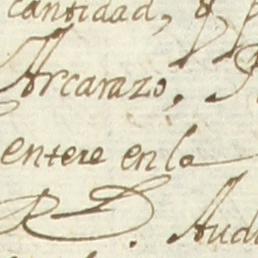 cantidad, y
Arcarazo,
entere en la
R. Aud